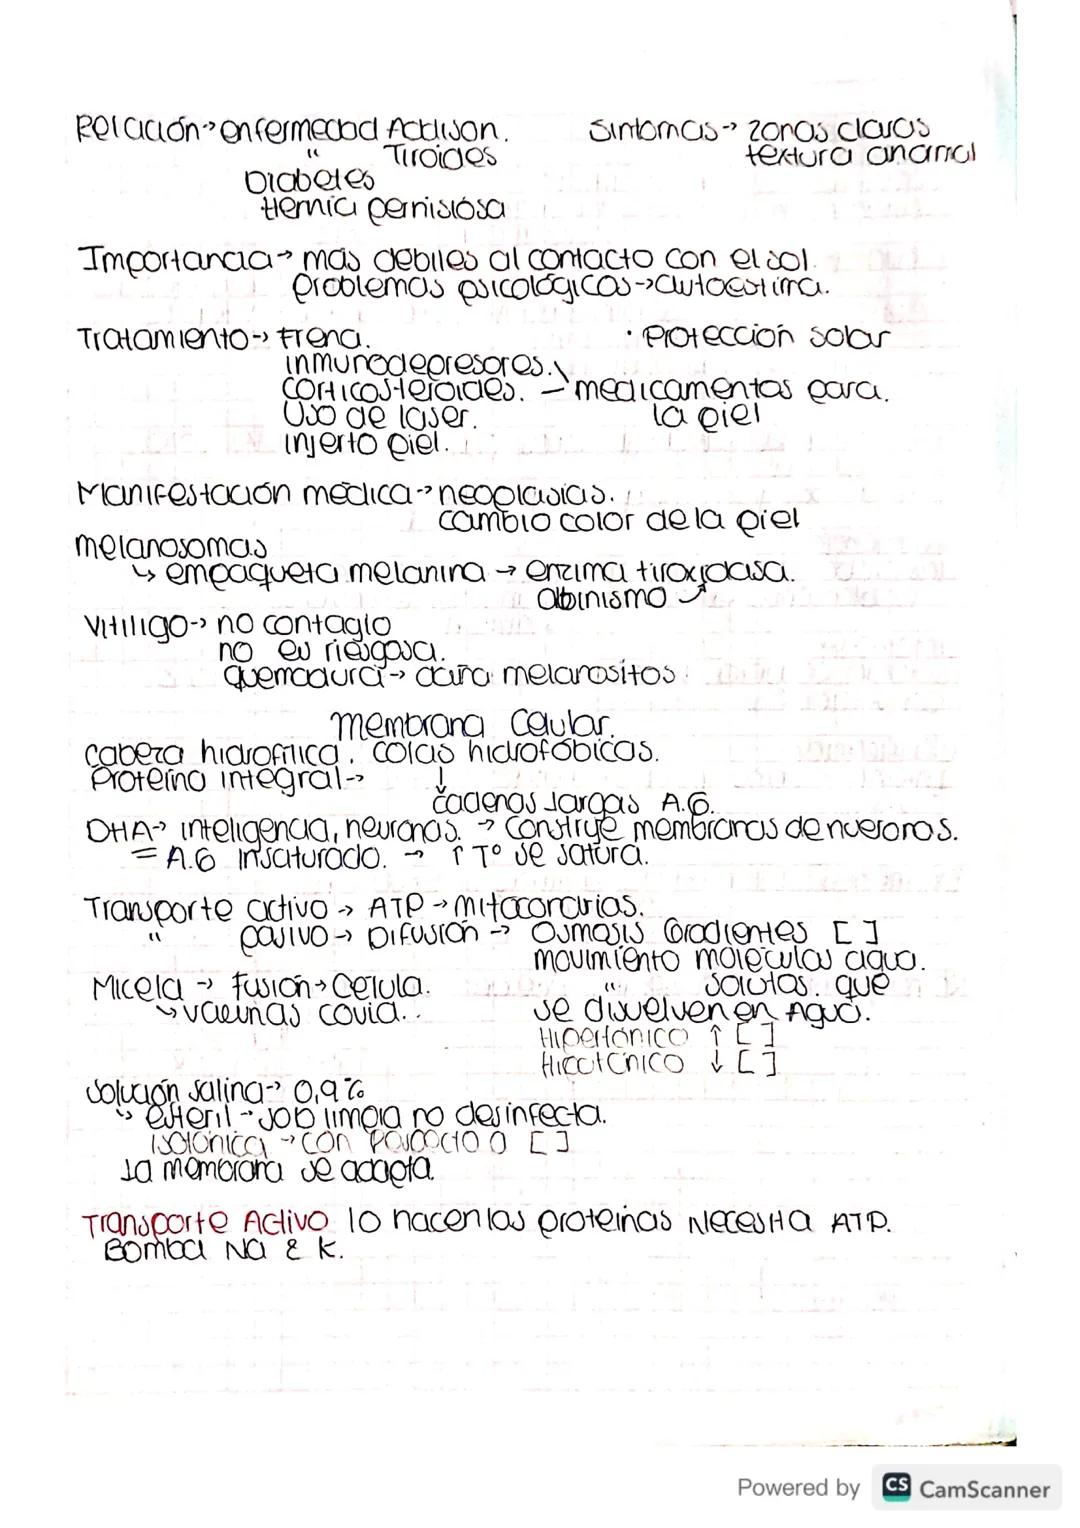 Relación → enfermedad Addison. Sintomas → zonas claras
" Tiroides textura anormal
Diabetes
Hernia pernisiosa
Importancia → más debiles al contacto con el sol.
problemas psicológicos → autoestima.
Tratamiento → Frena. · Protección solar
inmunodepresores.
corticosteroides. — medicamentos para.
Uso de laser. la piel
injerto piel.
Manifestación médica → neoplasias.
cambio color de la piel
melanosomas
↳ empaqueta melanina → enzima tiroxidasa.
albinismo
Vitiligo → no contagio
no es riesgosa.
quemadura → daña melanositos
Membrana Celular.
cabeza hidrofílica. colas hidrofóbicas.
Proteína integral → ↓
cadenas largas A.G.
DHA → inteligencia, neuronas. → Construye membranas de nueronas.
= A.G insaturado. → ↑ T° se satura.
Transporte activo → ATP → mitocondrias.
" pasivo → Difusión → Osmosis Gradientes [ ]
movimiento moleculas agua.
Micela → fusión → Celula. " solutos. que
↳ vacunas covid.. se disuelven en Agua.
Hipertónico ↑ [ ]
Hipotónico ↓ [ ]
Solución salina → 0,9%
↳ esteril → sob limpia no desinfecta.
isotónica → con respecto a [ ]
la membrana se adapta.
Transporte Activo lo hacen las proteinas Necesita ATP.
Bomba Na & K.
Powered by CS CamScanner